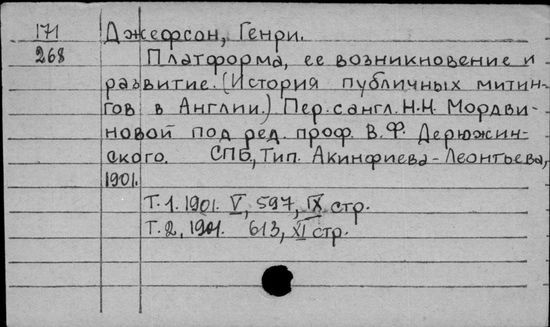 171 Джефсон, Генри.
268 Платформа, ее возникновение и
развитие. (История публичных митин-
гов в Англии.) Пер. с англ. Н.Н. Мордви-
новой под ред. проф. В.Ф. Дерюжин-
ского. СПБ, Тип. Акинфиева-Леонтьева,
1901.
Т. 1. 1901. V, 597, IX стр.
Т. 2, 1901. 613, XI стр.